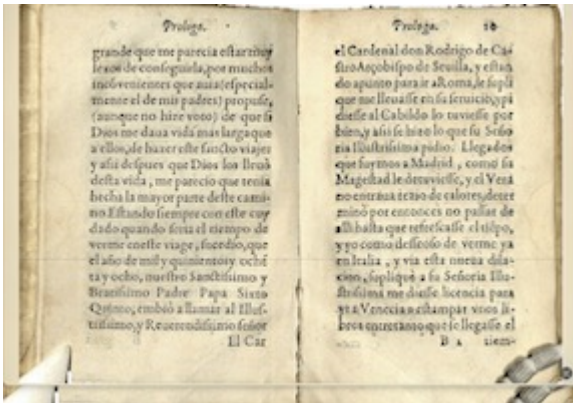 Prologo.
grande que me parecia estar muy
lexos de conseguirla, por muchos
inconvenientes que auia (especial-
mente el de mis padres) propuse,
(aunque no hize voto) de que si
Dios me daua vida mas larga que
a ellos, de hazer este sancto viaje;
y assi despues que Dios los lleuò
desta vida, me parecio que tenia
hecha la mayor parte deste cami-
no. Estando siempre con este cuy
dado quando seria el tiempo de
verme eneste viage, sucedio, que
el año de mil y quinientos y ochẽ
ta y ocho, nuestro Sanctissimo y
Beatissimo Padre Papa Sixto
Quinto, embiò a llamar al Illus-
trissimo, y Reuerendissimo señor
El Car
Prologo.
el Cardenal don Rodrigo de Ca-
stro Arçobispo de Seuilla, y estan
do apunto para ir a Roma, le supli
que me lleuasse en su seruicio, y pi
diesse al Cabildo lo tuuiesse por
bien, y assi se hizo lo que su Seño
ria Illustrissima pidio. Llegados
que fuymos a Madrid, como su
Magestad le detuuiesse, y el Vera
no entraua tezio de calores, deter
minò por entonces no passar de
alli hasta que refrescasse el tiẽpo,
y yo como desseoso de verme ya
en Italia, y vía esta nueua dila-
cion, supliquè a su Señoria Illu-
strissima me diesse licencia para
yr a Venecia a estampar vnos li-
bros entretanto que se llegasse el
B 2 tiem-